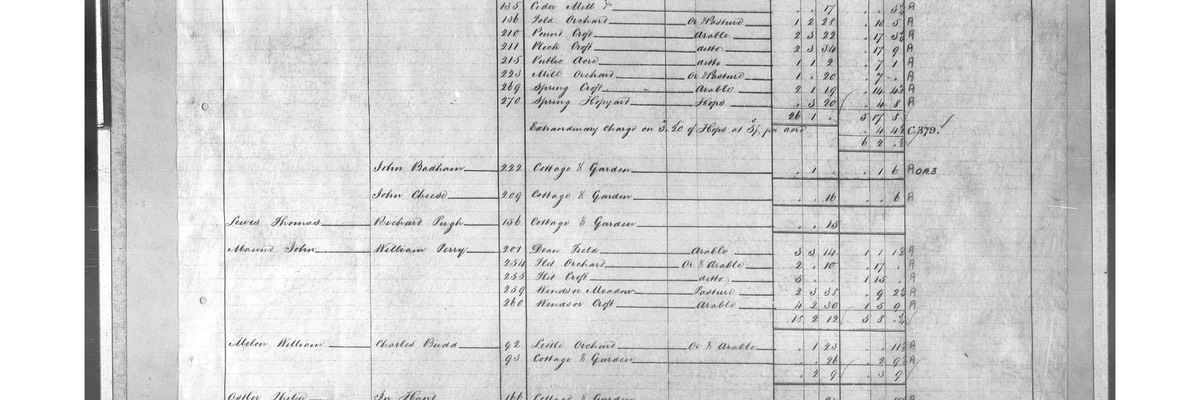 135 Cider Mill &c . . 17 . . 3½ A
136 Fold Orchard Or & Pasture 1 2 28 . 10 5 A
210 Pound Croft Arable 2 3 22 . 17 3½ A
211 Pleck Croft ditto 2 3 34 . 17 9 A
215 Public Acre ditto 1 1 2 . 7 1 A
223 Mill Orchard Or & Pasture 1 . 20 . 7 . A
269 Spring Croft Arable 2 1 19 . 14 4½ A
270 Spring Hopyard Hops . 3 20 . 4 8 A
26 1 . 5 17 8
Extraordinary Charge on 3. 20 of Hops at 5/ per acre . 4 4½ C.879.
6 2 . ½
John Badham 222 Cottage & Garden . 1 . . 1 6 A OA3
John Cheese 209 Cottage & Garden . . 16 . . 6 A
Lewis Thomas Richard Pugh 156 Cottage & Garden . . 15
Maund John William Perry 201 Dean Field Arable 3 3 14 1 1 1½ A
254 Flit Orchard Or & Arable 2 . 10 . 17 . A
255 Flit Croft ditto 5 . . 1 15 . A
259 Windsor Meadow Pasture 2 3 38 . 9 2½ A
260 Windsor Croft Arable 4 2 30 1 5 9 A
18 2 12 5 8 . ¾
Melon William Charles Budd 92 Little Orchard Or & Arable . 1 23 . . 11½ A
93 Cottage & Garden . . 26 . 2 9½ A
. 2 9 . 3 9
In Hand 166 Cottage & Garden A